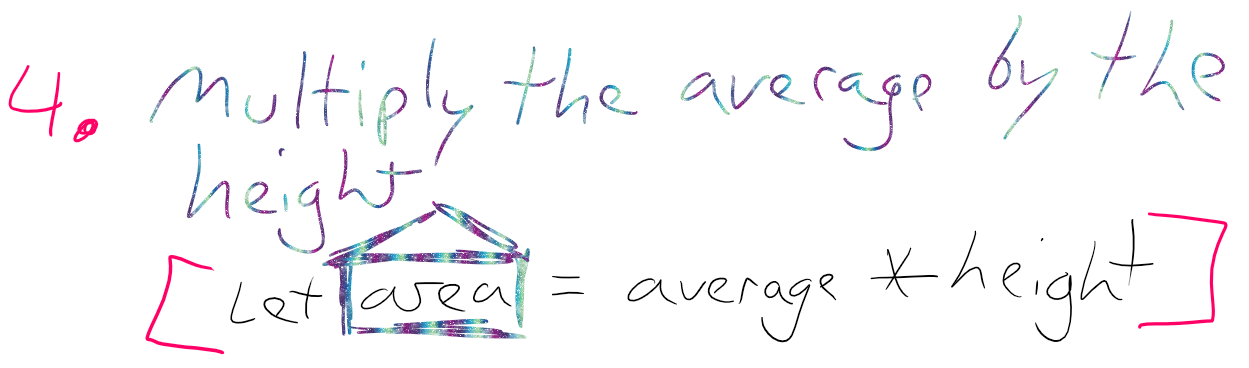 4. Multiply the average by the
height
[Let area = average * height]